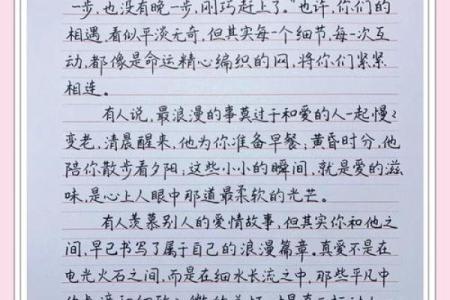 一步，也没有晚一步，刚巧赶上了。"也许，你们的
相遇，看似平淡无奇，但其实每个细节，每一次互
动，都像是命运精心编织的网，将你们紧紧
相连。
有人说，最浪漫的事莫过于和爱的人一起慢慢
变老，清晨醒来，他为你准备早餐；黄昏时分，他
陪你散步看夕阳；这些小小的瞬间，就是爱的滋
味，是心上人眼中那道最柔软的光芒。
有人羡慕别人的爱情故事，但其实你和他之
间，早已书写了属于自己的浪漫篇章。真爱不是在
电光火石之间，而是在细水长流之中，那些平凡中